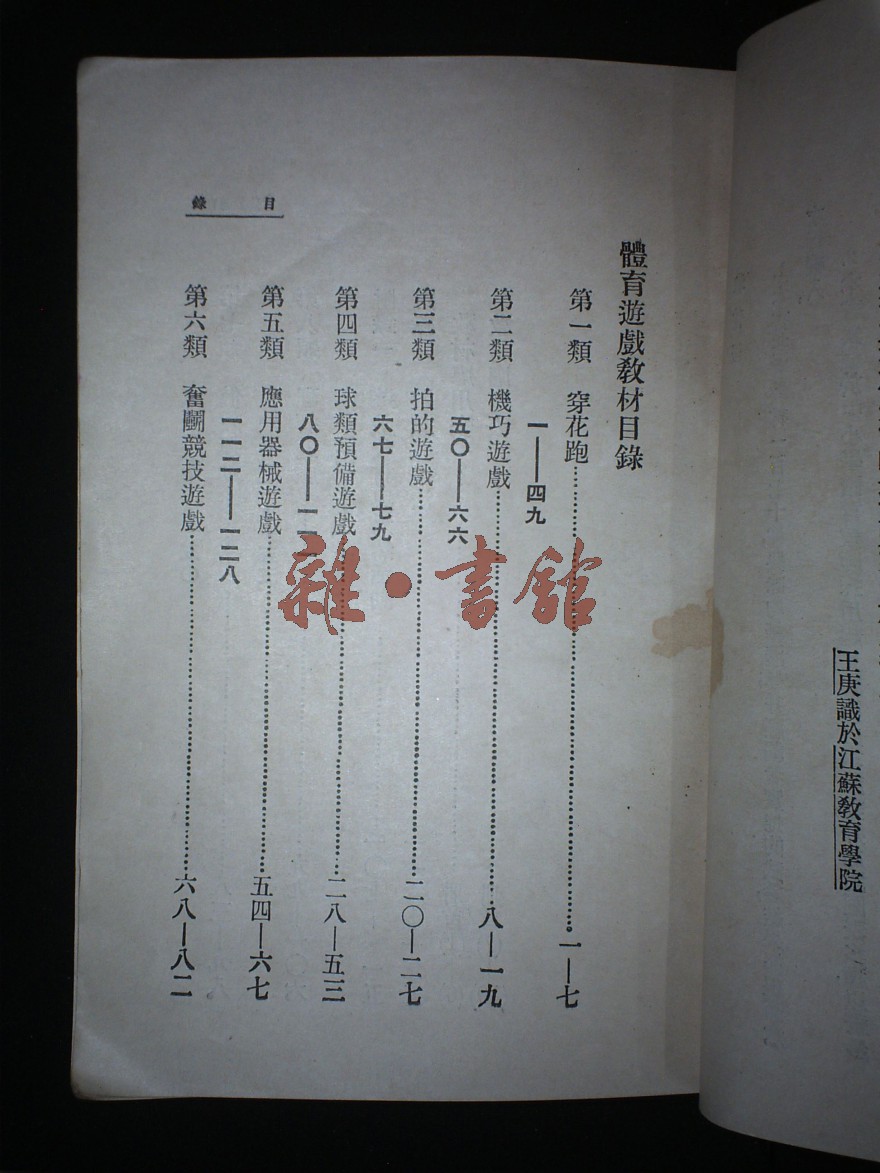 王庚識於江蘇教育學院
目錄
體育遊戲教材目錄
第一類 穿花跑……一—七
一——四九
第二類 機巧遊戲……八—一九
五〇—六六
第三類 拍的遊戲……二〇—二七
六七—七九
第四類 球類預備遊戲……二八—五三
八〇—一一
第五類 應用器械遊戲……五四—六七
一一二—一二八
第六類 奮鬭競技遊戲……六八—八二
雜·書館